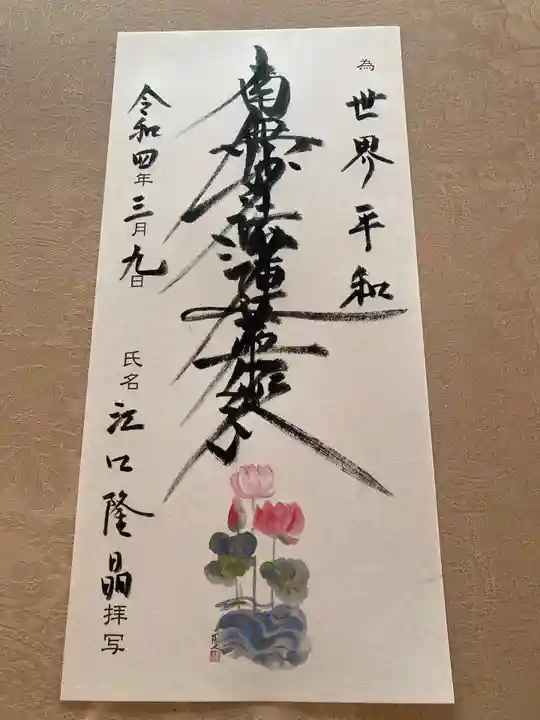 為 世界平和
南無妙法蓮華経
令和四年三月九日
氏名 江口隆晶 拝写